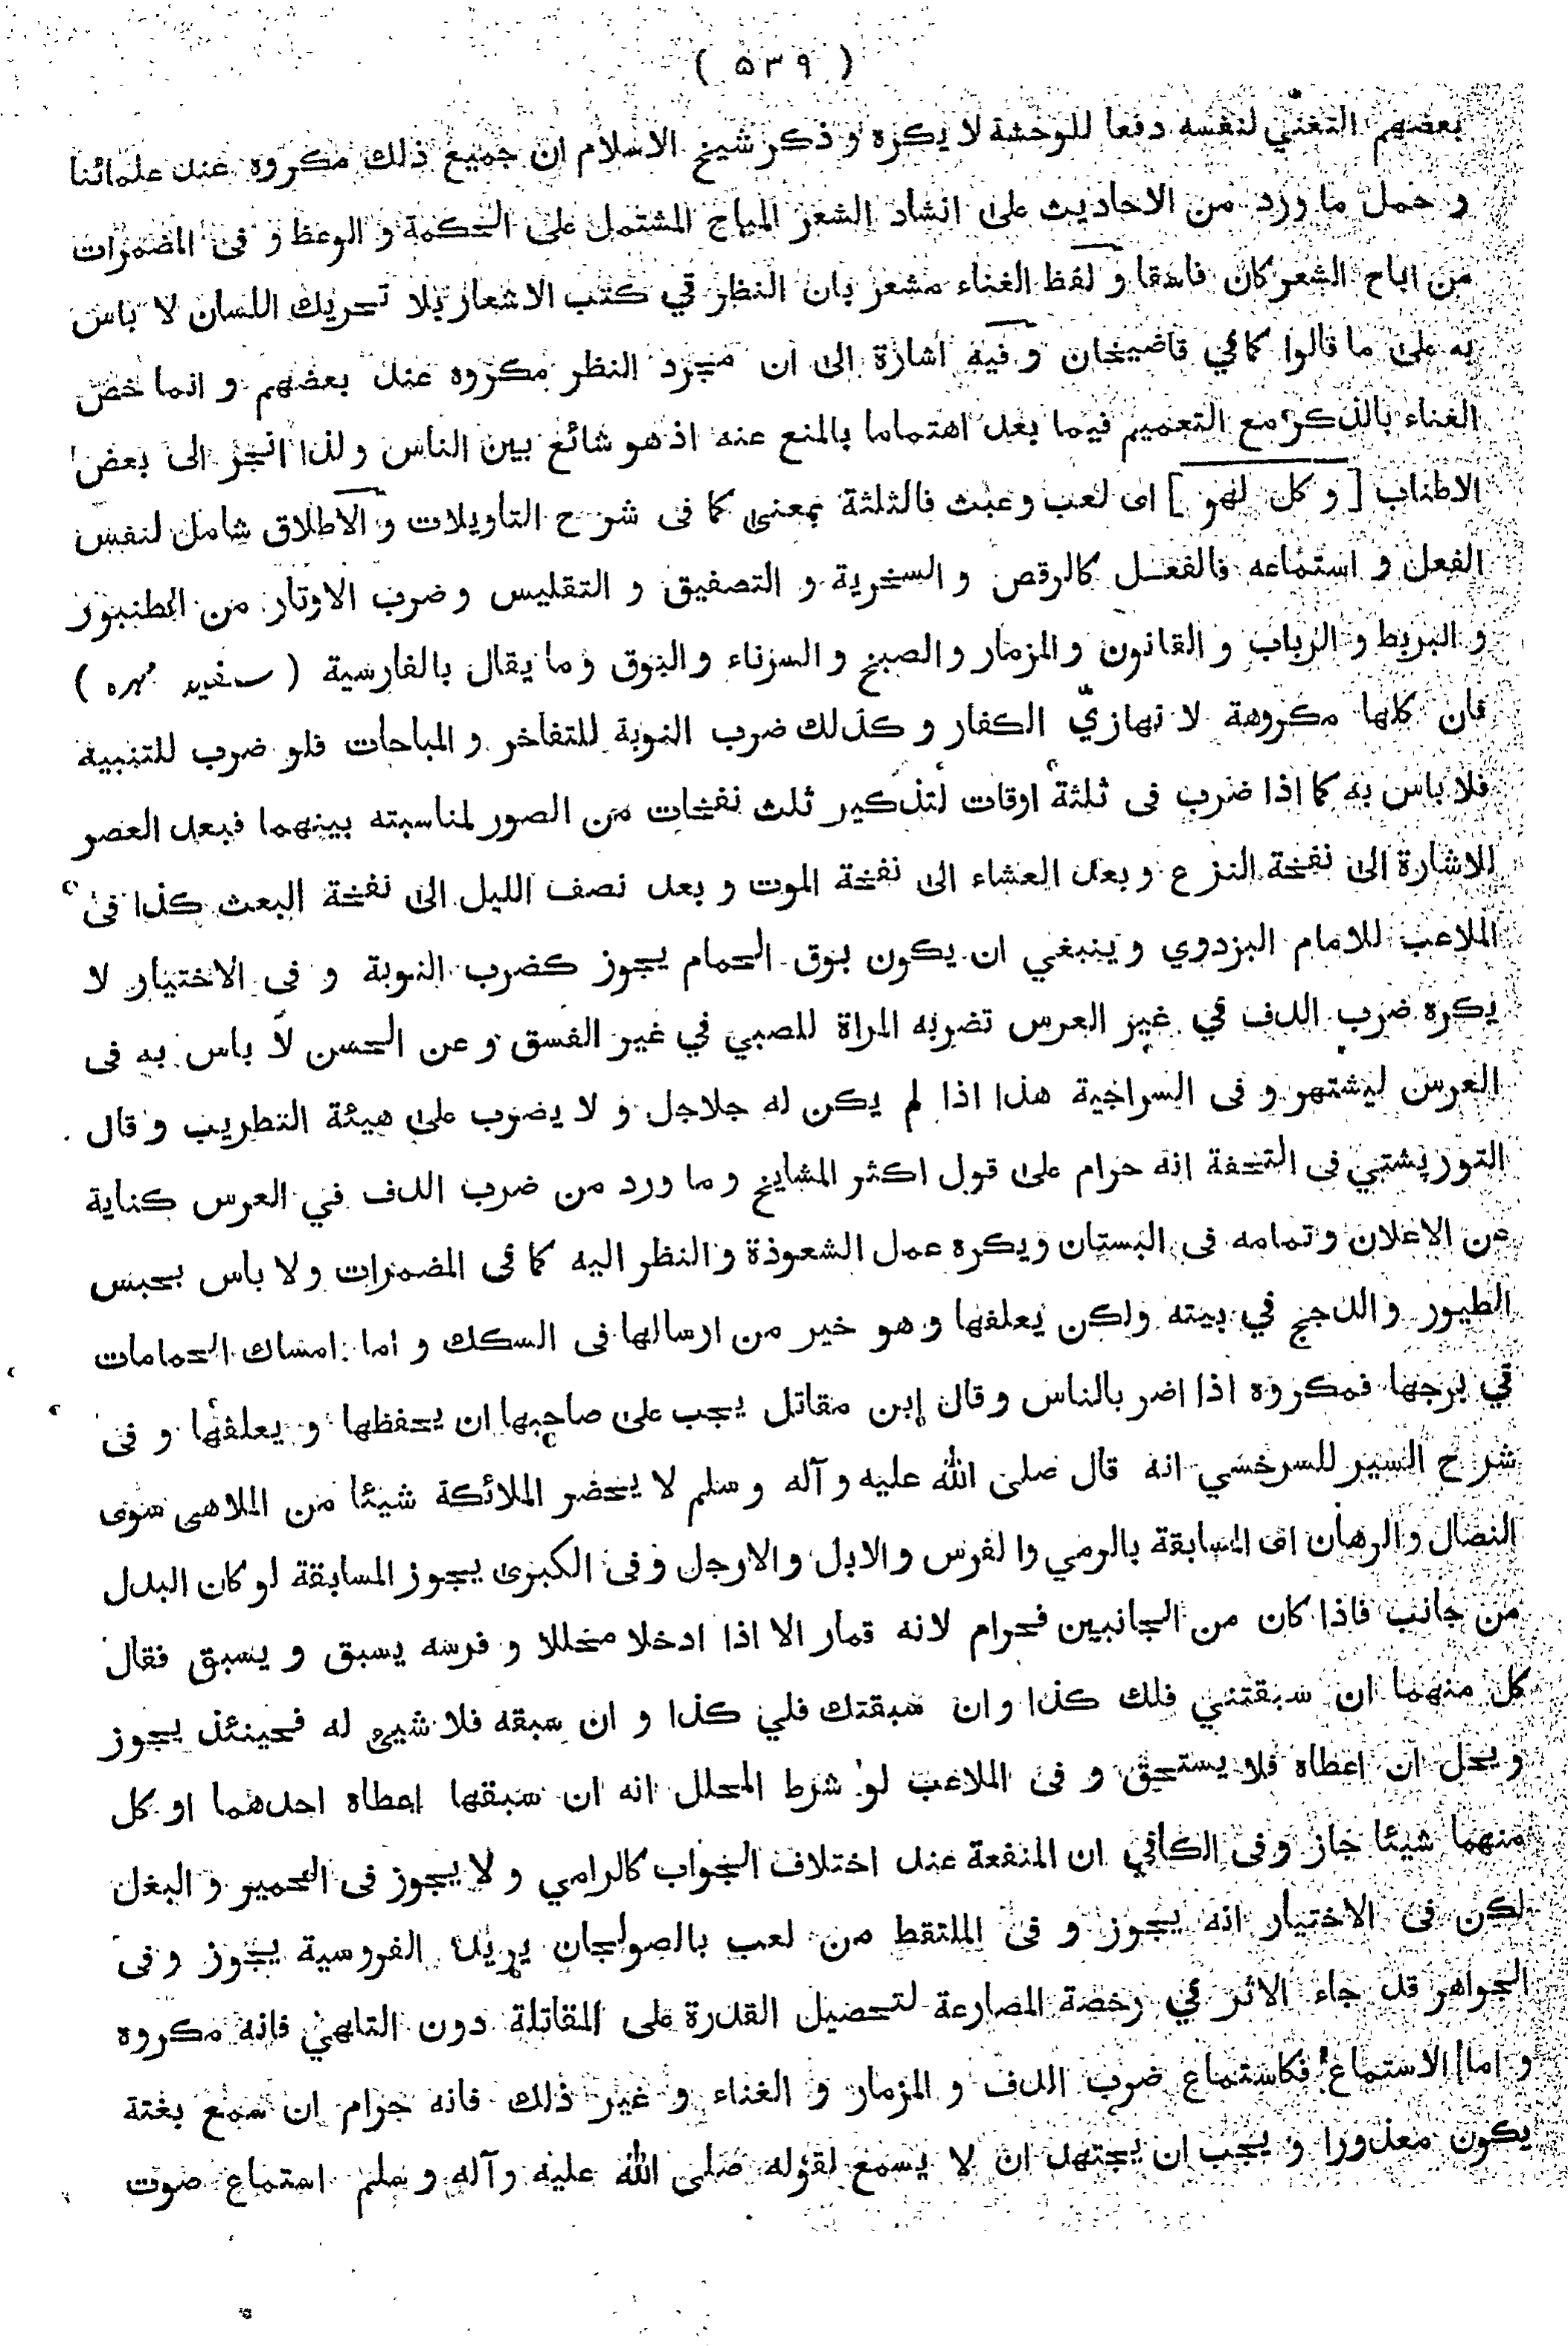 ( ۵۳۹ )
بعضهم التغنّي لنفسه دفعا للوحشة لا يكره و ذكر شيخ الاسلام ان جميع ذلك مكروه عند علمائنا
و حمل ما ورد من الاحاديث على انشاد الشعر المباح المشتمل على الحكمة و الوعظ و فى المضمرات
من اباح الشعر كان فاسقا و لفظ الغناء مشعر بان النظر في كتب الاشعار بلا تحريك اللسان لا باس
به على ما قالوا كما في قاضيخان و فيه اشارة الى ان مجرد النظر مكروه عند بعضهم و انما خص
الغناء بالذكر مع التعميم فيما بعد اهتماما بالمنع عنه اذ هو شائع بين الناس و لذا انجر الى بعض
الاطناب [ و كل لهو ] اى لعب و عبث فالثلثة بمعنى كما فى شرح التاويلات و الاطلاق شامل لنفس
الفعل و استماعه فالفعل كالرقص و السخرية و التصفيق و التقليس و ضرب الاوتار من الطنبور
و البربط و الرباب و القانون و المزمار و الصبخ و السرناء و البوق و ما يقال بالفارسية ( سفيد مهره )
فان كلها مكروهة لا نهازيّ الكفار و كذلك ضرب النوبة للتفاخر و المباحات فلو ضرب للتنبيه
فلا باس به كما اذا ضرب فى ثلثة اوقات لتذكير ثلث نفخات من الصور لمناسبته بينهما فبعد العصر
للاشارة الى نفخة النزع و بعد العشاء الى نفخة الموت و بعد نصف الليل الى نفخة البعث كذا فى
الملاعب للامام البزدوي و ينبغي ان يكون بوق الحمام يجوز كضرب النوبة و فى الاختيار لا
يكره ضرب الدف في غير العرس تضربه المراة للصبي في غير الفسق و عن الحسن لا باس به فى
العرس ليشتهر و فى السراجية هذا اذا لم يكن له جلاجل و لا يضرب على هيئة التطريب و قال
التورپشتي فى التحفة انه حرام على قول اكثر المشايخ و ما ورد من ضرب الدف في العرس كناية
عن الاعلان و تمامه فى البستان و يكره عمل الشعوذة و النظر اليه كما فى المضمرات و لا باس بحبس
الطيور و الدجج في بيته ولكن يعلفها و هو خير من ارسالها فى السكك و اما امساك الحمامات
في برجها فمكروه اذا اضر بالناس و قال إبن مقاتل يجب على صاحبها ان يحفظها و يعلفها و فى
شرح السير للسرخسي انه قال صلى الله عليه و آله و سلم لا يحضر الملائكة شيئا من الملاهى سوى
النضال و الرهان اى المسابقة بالرمي و الفرس و الابل و الارجل و فى الكبرى يجوز المسابقة لو كان البدل
من جانب فاذا كان من الجانبين فحرام لانه قمار الا اذا ادخلا محللا و فرسه يسبق و يسبق فقال
كل منهما ان سبقتني فلك كذا و ان سبقتك فلي كذا و ان سبقه فلا شيئ له فحينئذ يجوز
و يحل ان اعطاه فلا يستحق و فى الملاعب لو شرط المحلل انه ان سبقها اعطاه احدهما او كل
منهما شيئا جاز و فى الكافي ان المنفعة عند اختلاف الجواب كالرامي و لا يجوز فى الحمير و البغل
لكن فى الاختيار انه يجوز و فى الملتقط من لعب بالصولجان يريد الفروسية يجوز و فى
الجواهر قد جاء الاثر في رخصة المصارعة لتحصيل القدرة على المقاتلة دون التلهي فانه مكروه
و اما الاستماع فكاستماع ضرب الدف و المزمار و الغناء و غير ذلك فانه حرام ان سمع بغتة
يكون معذورا و يجب ان يجتهد ان لا يسمع لقوله صلى الله عليه و آله و سلم استماع صوت